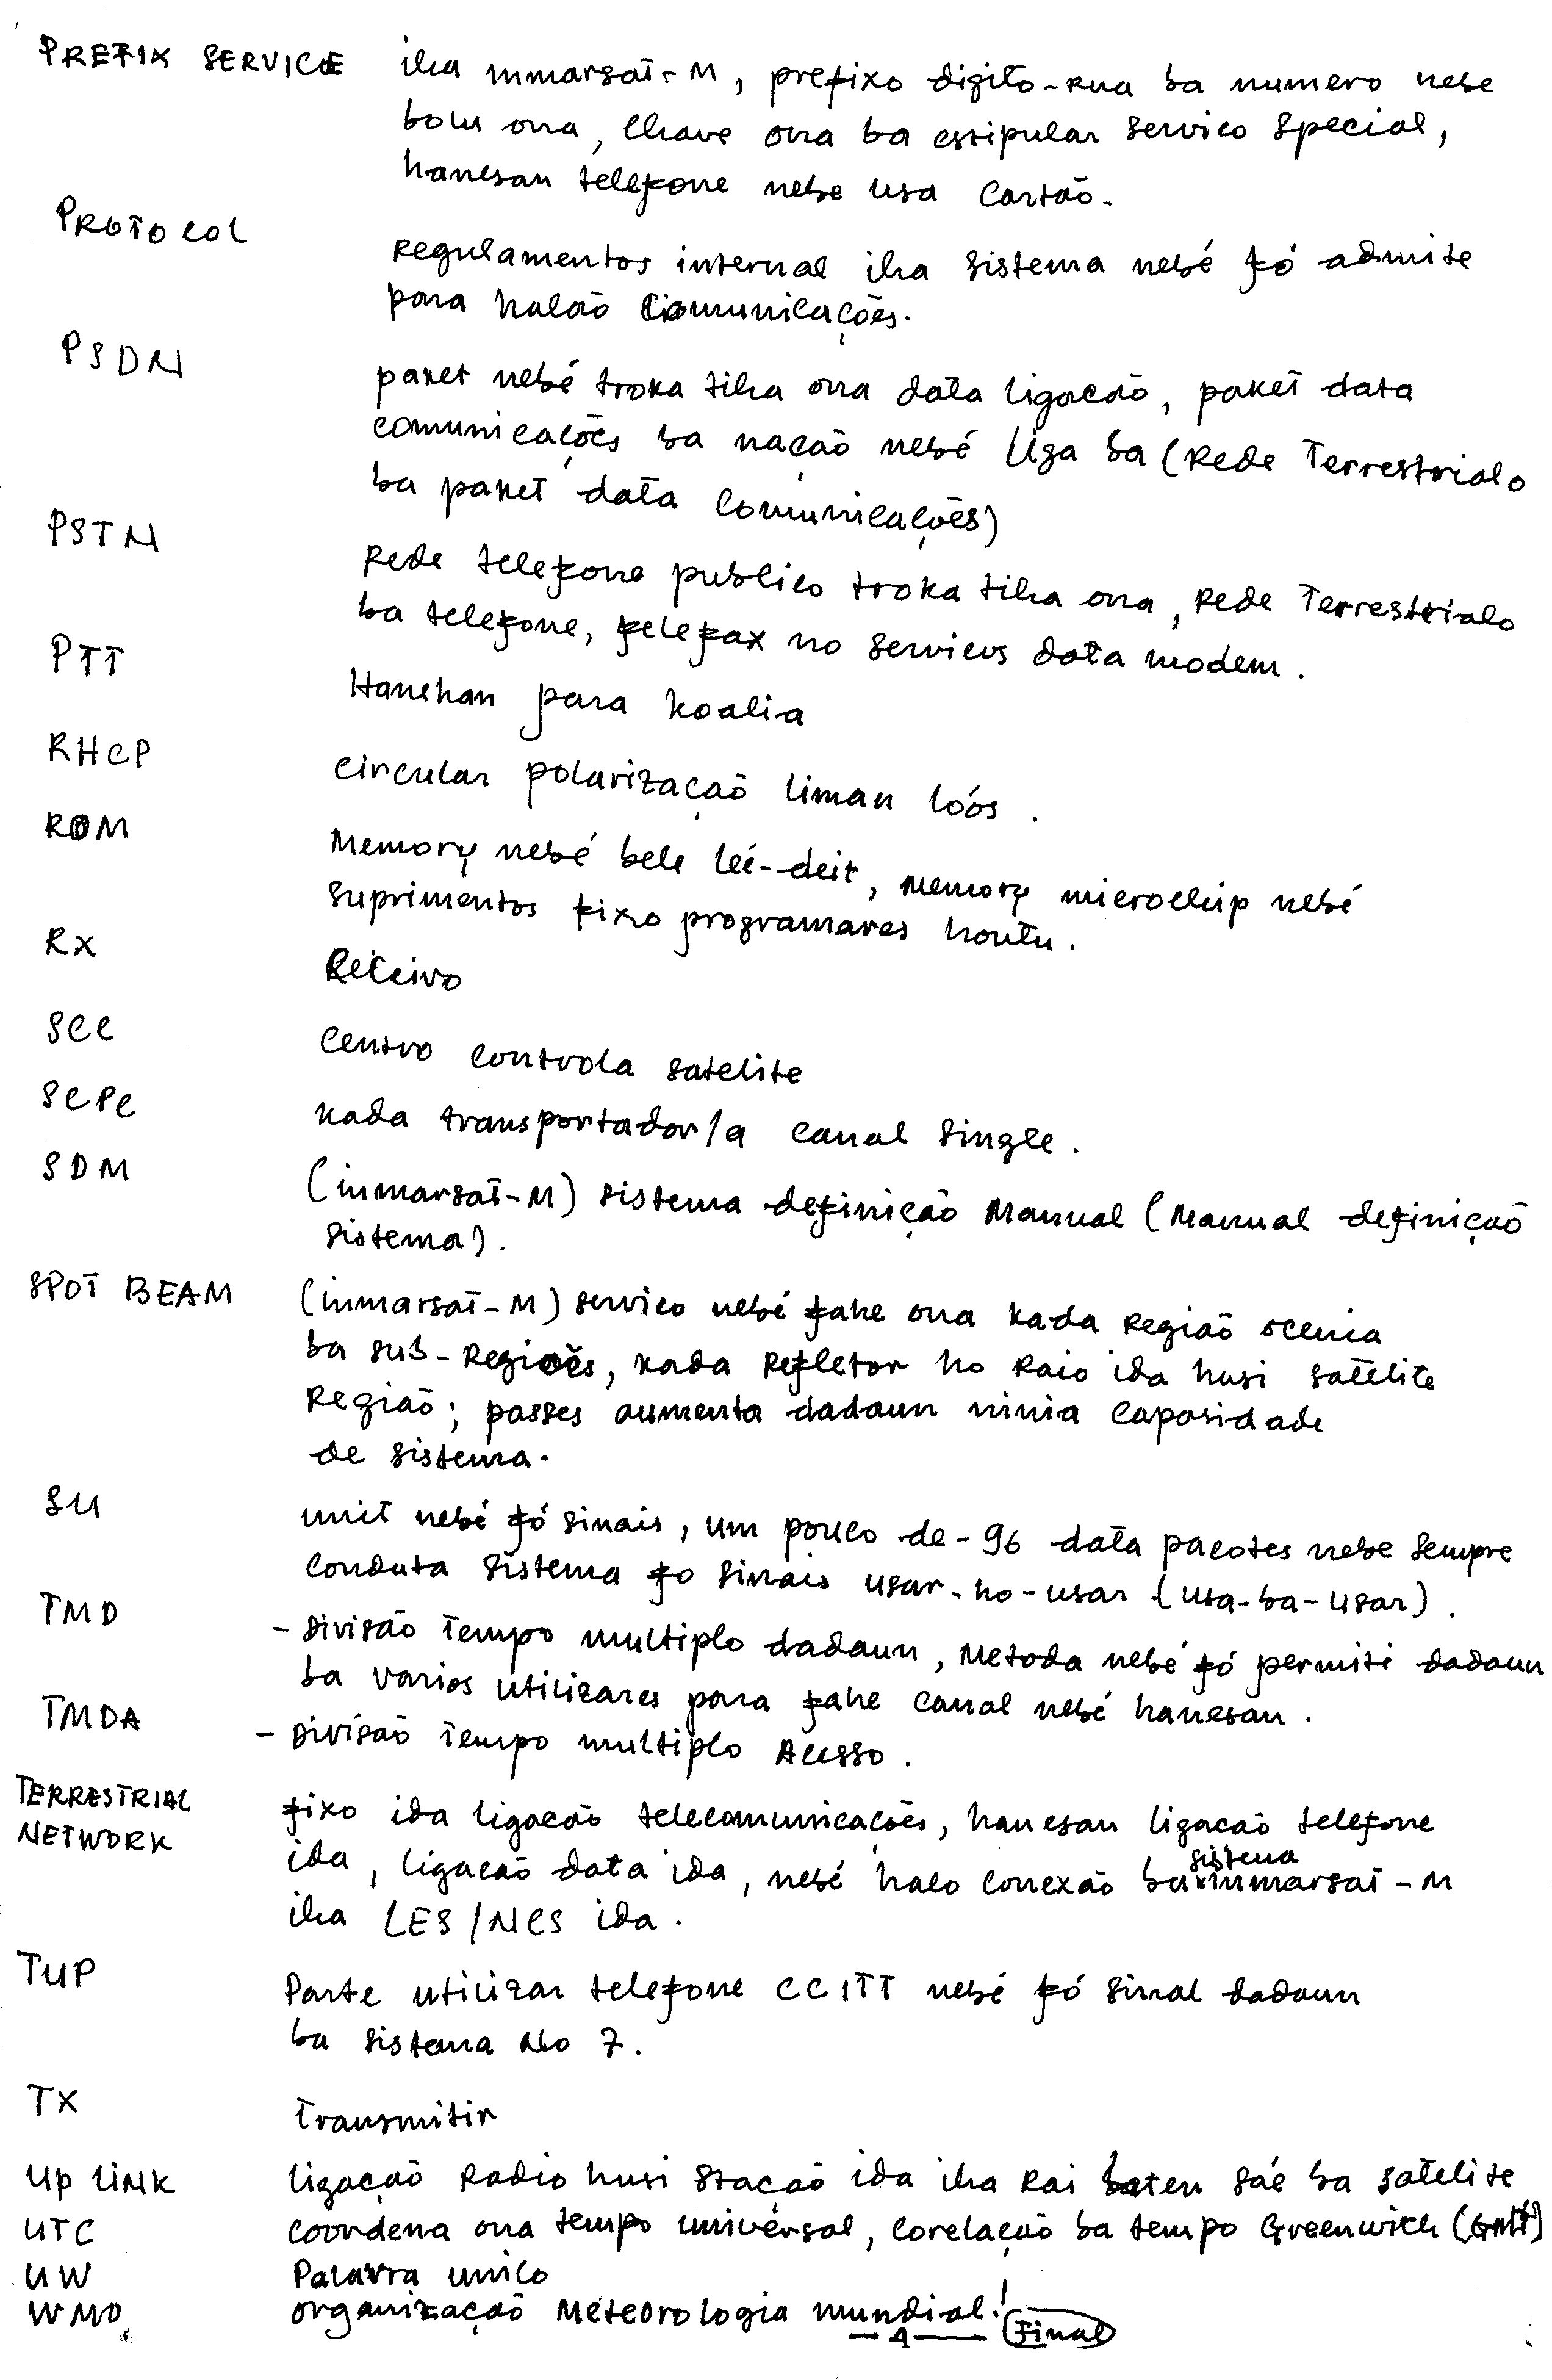 PREFIX SERVICE iha inmarsat-M, prefixo digito-rua ba numero nebe
bolu ona, chave ona ba estipular servico special,
hanesan telefone nebe usa cartão.
PROTOCOL
regulamentos internal iha sistema nebé fó admite
para halao comunicações.
PSDN
paket nebé troka tiha ona data ligacão, paket data
comunicações ba nação nebé liga ba (Rede Terrestrialo
ba paket data comunicações)
PSTN
Rede telefone publico troka tiha ona, Rede Terrestrialo
ba telefone, telefax no servicos data modem.
PTT Hanehan para koalia
RHCP circular polarização liman loós.
ROM Memory nebé bele leé-deit, memory microchip nebé
suprimentos fixo programares hontu.
RX Receivo
SCC Centro controla satelite
SCPC kada transportador/a canal single.
SDM (inmarsat-M) sistema definição Manual (Manual definição
sistema).
SPOT BEAM (inmarsat-M) servico nebé fahe ona kada região ocenia
ba sub-regioẽs, kada refletor ho raio ida husi satélite
região; passes aumenta dadaun ninia capasidade
de sistema.
SU unit nebé fó sinais, um pouco de-96 data pacotes nebe sempre
conduta sistema fo sinais usar-ho-usar (usa-ba-usar).
TMD - Divisão Tempo multiplo dadaun, metoda nebé fó permiti dadaun
ba varios utilizares para fahe canal nebé hanesan.
TMDA - Divisão Tempo multiplo Acesso.
TERRESTRIAL fixo ida ligacão telecomunicacões, hanesan ligacão telefone
NETWORK ida, ligacão data ida, nebé halo conexão ba sistema inmarsat-M
iha LES/NCS ida.
TUP Parte utilizar telefone CCITT nebé fó sinal dadaun
ba sistema No 7.
TX Transmitir
UP LINK ligação Radio husi stacão ida iha Rai baten sáe ba satelite
UTC coordena ona tempo univérsal, corelação ba tempo Greenwich (GMT)
UW Palavra unico
WMO organização Meteorologia mundial!
—4— Final